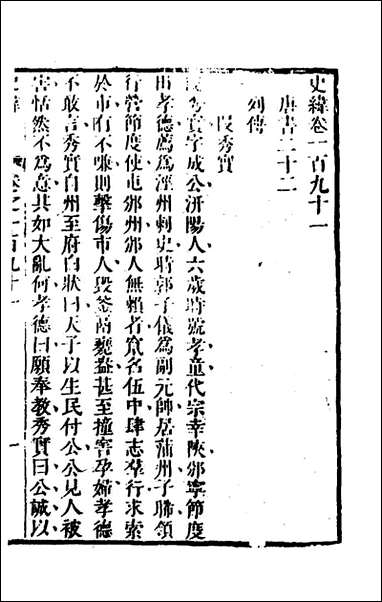 史緯卷一百九十一
唐書二十二
列傳
段秀實
段秀實字成公汧陽人六歲時號孝童代宗幸陝邠寧節度
白孝德薦為涇州刺史時郭子儀為副元帥居蒲州子晞領
行營節度使屯邠州邠人無賴者竄名伍中肆志羣行求索
於市有不嗛則擊傷市人毀釜鬲甕盎甚至撞害孕婦孝德
不敢言秀實自州至府白狀曰天子以生民付公公見人被
害恬然不為意其如大亂何孝德曰願奉教秀實曰公誠以
史緯
卷之一百九十一
一